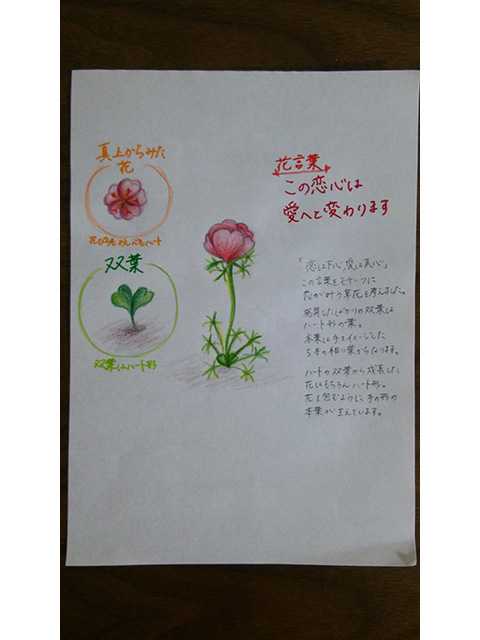 真上からみた
花
花びらもめしべもハート
双葉
双葉はハート形
花言葉
この恋心は
愛へと変わります
「恋は下心、愛は真心」
この言葉をモチーフに
恋が叶う草花を考えました。
発芽したばかりの双葉は
ハート形の葉。
本葉は手をイメージした
5本の細い葉からなります。
ハートの双葉から成長した
花はもちろんハート形。
花を包むように、手の形の
本葉が生えています。